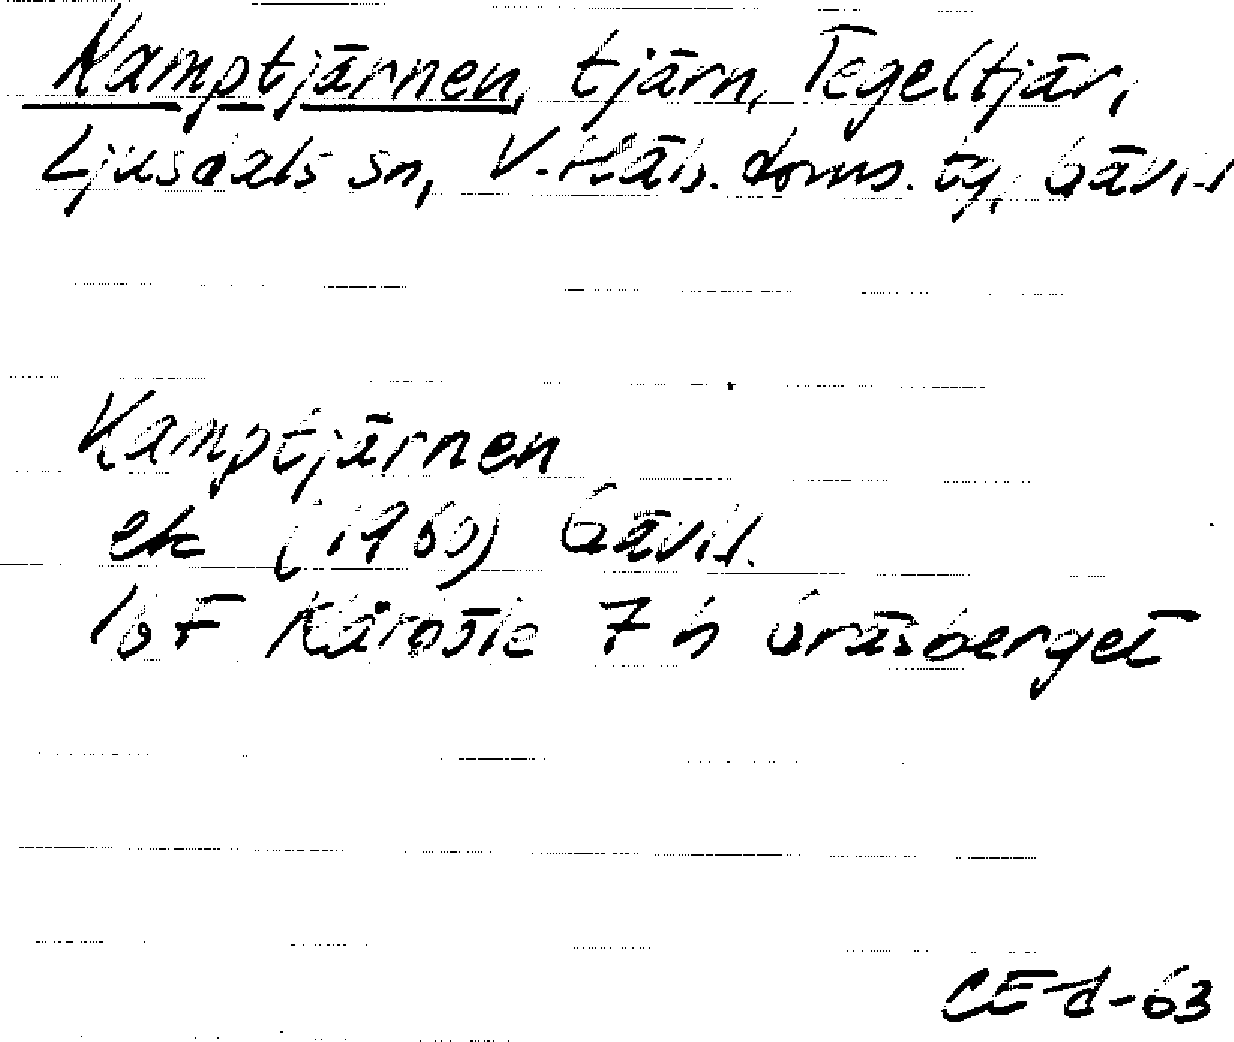 Kamptjärnen, tjärn, Tegeltjär,
Ljusdals sn, V. Häls. doms. tg, Gävl.
Kamptjärnen
ek (1960) Gävl.
7 h Gräsberget
CE-d-63